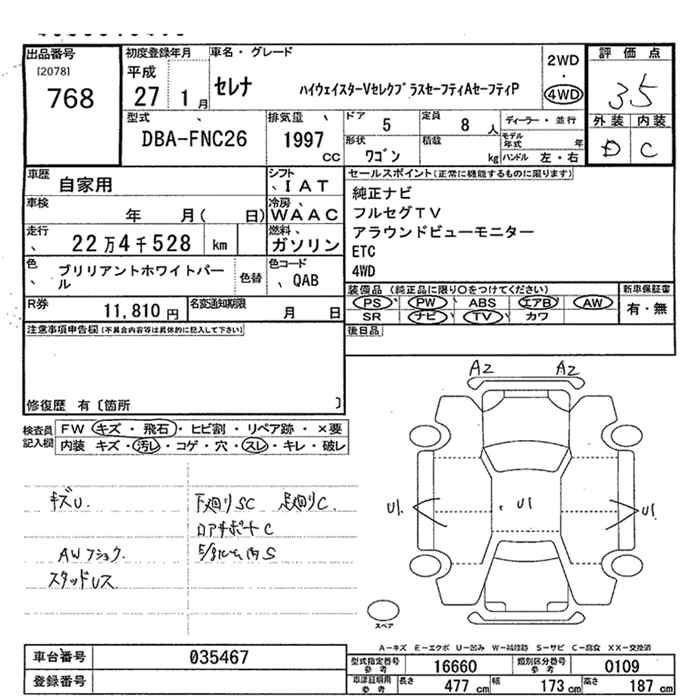 出品番号
[2078]
768
初度登録年月
平成
27 1 月
車名・グレード
セレナ ハイウェイスターVセレクプラスセーフティAセーフティP
2WD
・
4WD
評価点
3.5
外装 内装
D C
型式
DBA-FNC26
排気量
1997 cc
ドア 5
定員 8 人
形状 ワゴン
積載 kg
ディーラー・並行
モデル年式 年
ハンドル 左・右
車歴 自家用
シフト IAT
車検 年 月( 日)
冷房 WAAC
走行 22万4千528 km
燃料 ガソリン
色 ブリリアントホワイトパール
色替
色コード QAB
R券 11,810 円
名変通知期限 月 日
セールスポイント(正常に機能するものに限ります)
純正ナビ
フルセグTV
アラウンドビューモニター
ETC
4WD
装備品 (純正品に限り○をつけてください)
PS PW ABS エアB AW
SR ナビ TV カワ
新車保証書
有・無
後日品
注意事項申告欄(不具合内容等は具体的に記入して下さい)
修復歴 有〔箇所 〕
検査員記入欄
FW キズ・飛石・ヒビ割・リペア跡・×要
内装 キズ・汚レ・コゲ・穴・スレ・キレ・破レ
キズU.
下廻りSC 足廻りC.
ロアサポートC
AWフショク
スタッドレス
A2 A2
U1 U1 U1
スペア
A-キズ E-エクボ U-凹み W-補修跡 S-サビ C-腐食 XX-交換済
車台番号 035467
登録番号
型式指定番号 参考 16660
類別区分番号 参考 0109
車庫証明用 参考 長さ 477 cm 幅 173 cm 高さ 187 cm